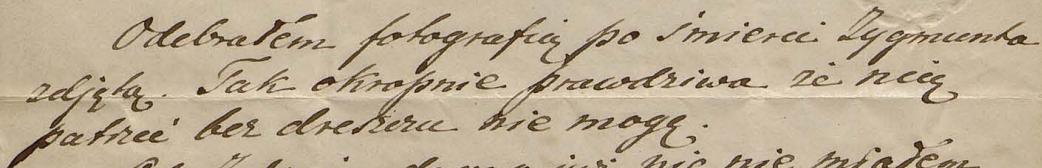 Odebrałem fotografią po śmierci Zygmunta
zdjętą. Tak okropnie prawdziwa że nią
patrzeć bez dreszczu nie mogę.
już nic nie miałem